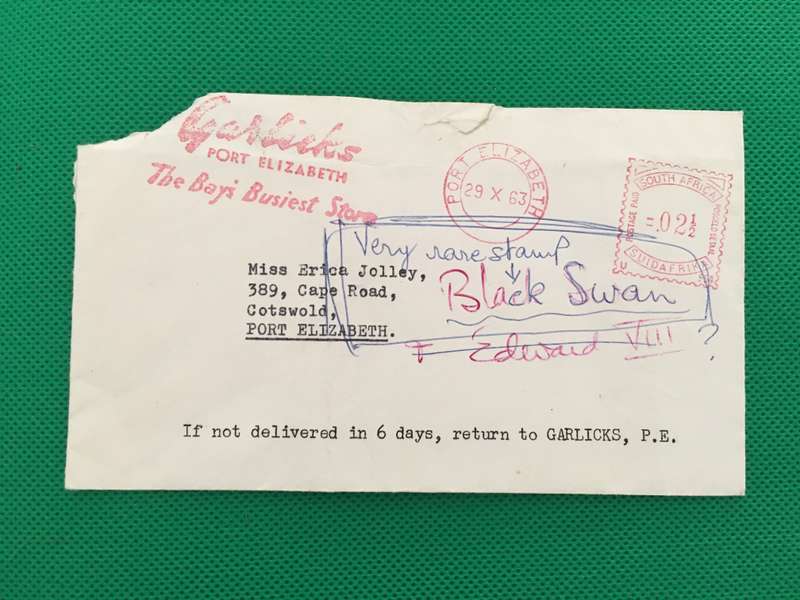 Garlicks
PORT ELIZABETH
The Bay's Busiest Store
PORT ELIZABETH
29 X 63
SOUTH AFRICA
POSTAGE PAID
=.02½
POSGELD BETAAL
SUIDAFRIKA
U
Very rare stamp
Black Swan
+ Edward VIII ?
Miss Erica Jolley,
389, Cape Road,
Cotswold,
PORT ELIZABETH.
If not delivered in 6 days, return to GARLICKS, P.E.